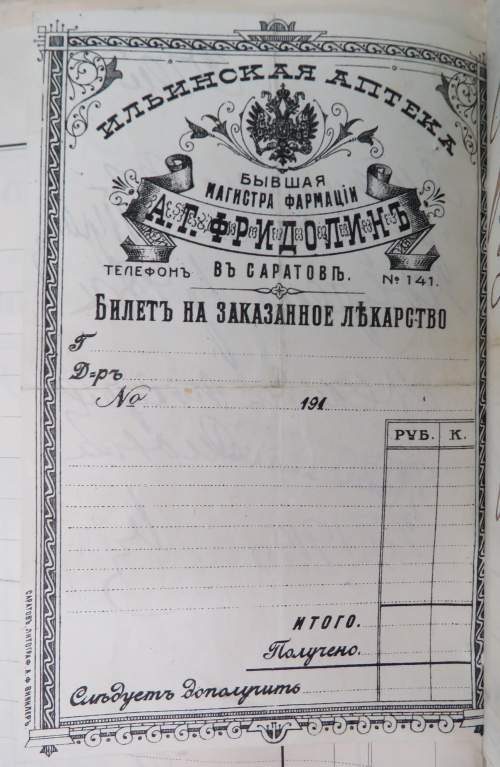 ИЛЬИНСКАЯ АПТЕКА
БЫВШАЯ
МАГИСТРА ФАРМАЦІИ
А.Г.ФРИДОЛИНЪ
ВЪ САРАТОВѢ.
ТЕЛЕФОНЪ № 141.
БИЛЕТЪ НА ЗАКАЗАННОЕ ЛѢКАРСТВО
Г
Д-ръ
№ 191
РУБ. К.
ИТОГО.
Получено.
Слѣдуетъ дополучить
САРАТОВЪ, ЛИТОГРАФ. А. Ф. ВИНКЛЕРЪ